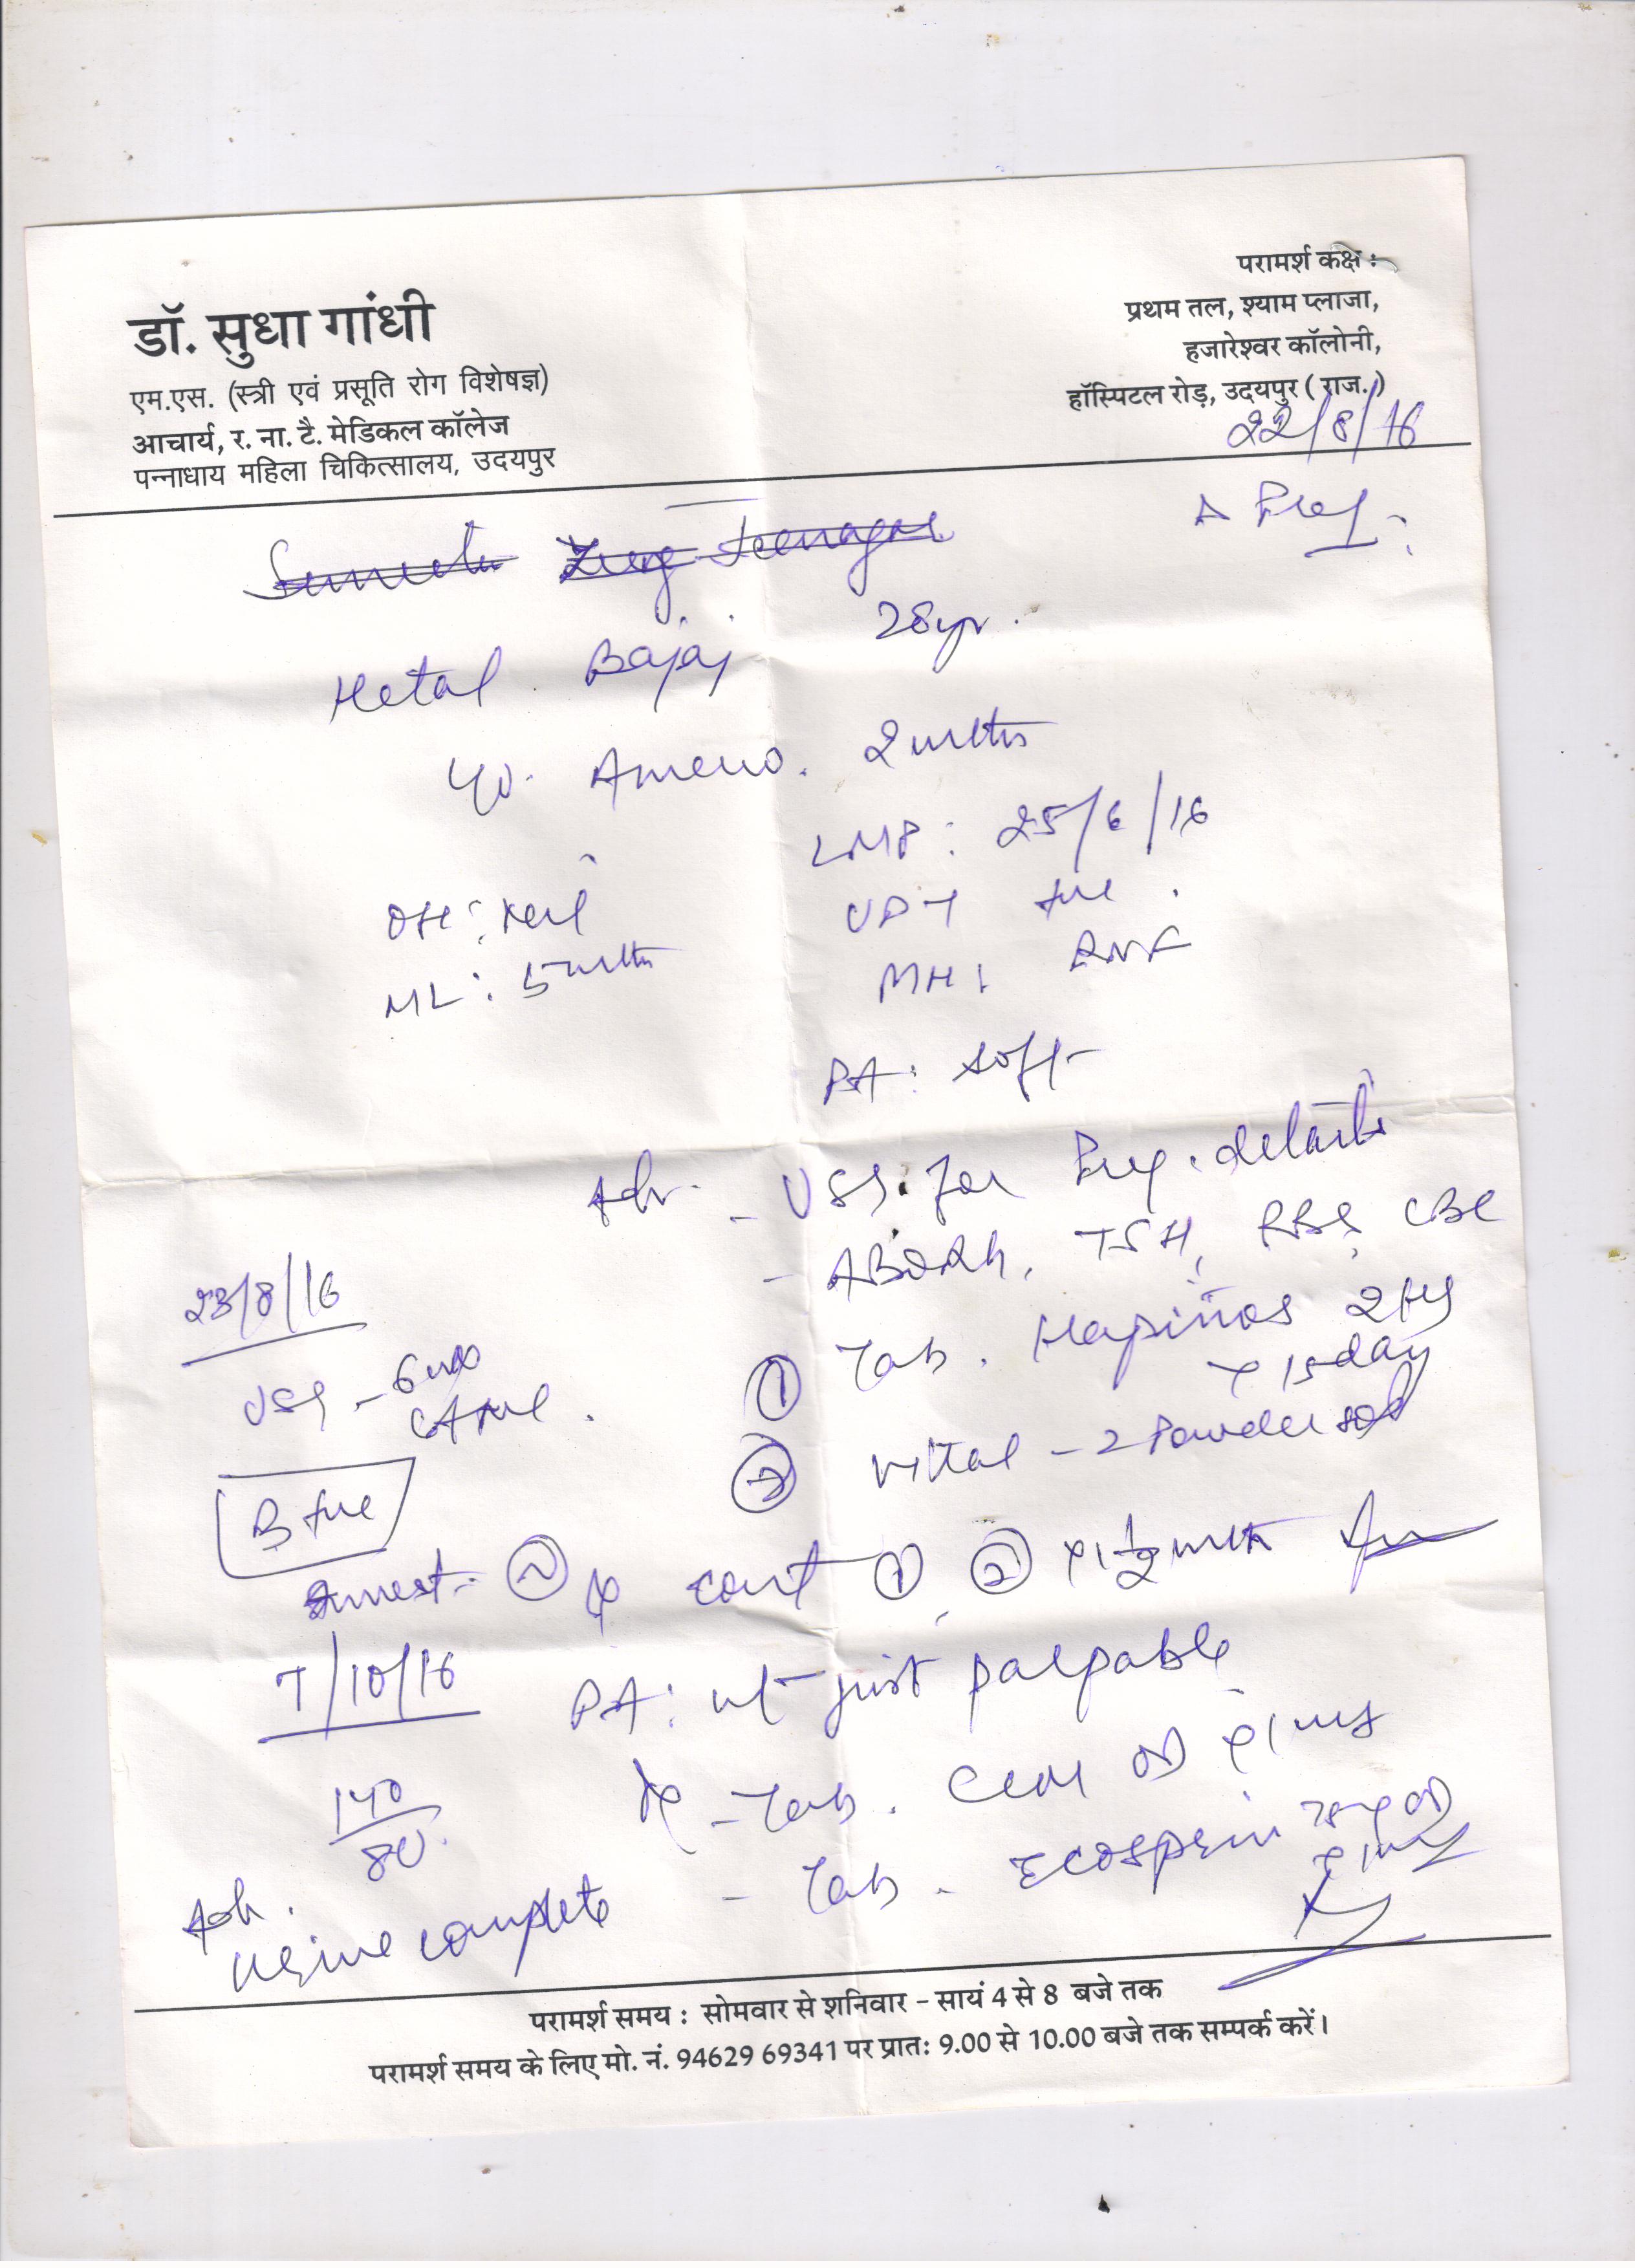 डॉ. सुधा गांधी
एम.एस. (स्त्री एवं प्रसूति रोग विशेषज्ञ)
आचार्य, र. ना. टै. मेडिकल कॉलेज
पन्नाधाय महिला चिकित्सालय, उदयपुर
परामर्श कक्ष :
प्रथम तल, श्याम प्लाजा,
हजारेश्वर कॉलोनी,
हॉस्पिटल रोड़, उदयपुर ( राज. )
22/8/16
Hetal Bajaj 28yr.
Ameno. 2mths
LMP: 25/6/16
OH: Nil
UPT +ve
ML: 5mths
MH:
PA: soft
Adv. - USG for Preg. details
- ABORh, TSH, RBS, CBC
23/8/16
① Tab.
x 15day
USG - 6
② - 2 Powder
B +ve
cont ① ② x 1½mth
7/10/16
PA: ut just palpable
140/80
- Tab. OD x 1
- Tab. Ecosprin 75mg OD
Adv.
Urine complete
परामर्श समय : सोमवार से शनिवार - सायं 4 से 8 बजे तक
परामर्श समय के लिए मो. नं. 94629 69341 पर प्रात: 9.00 से 10.00 बजे तक सम्पर्क करें।